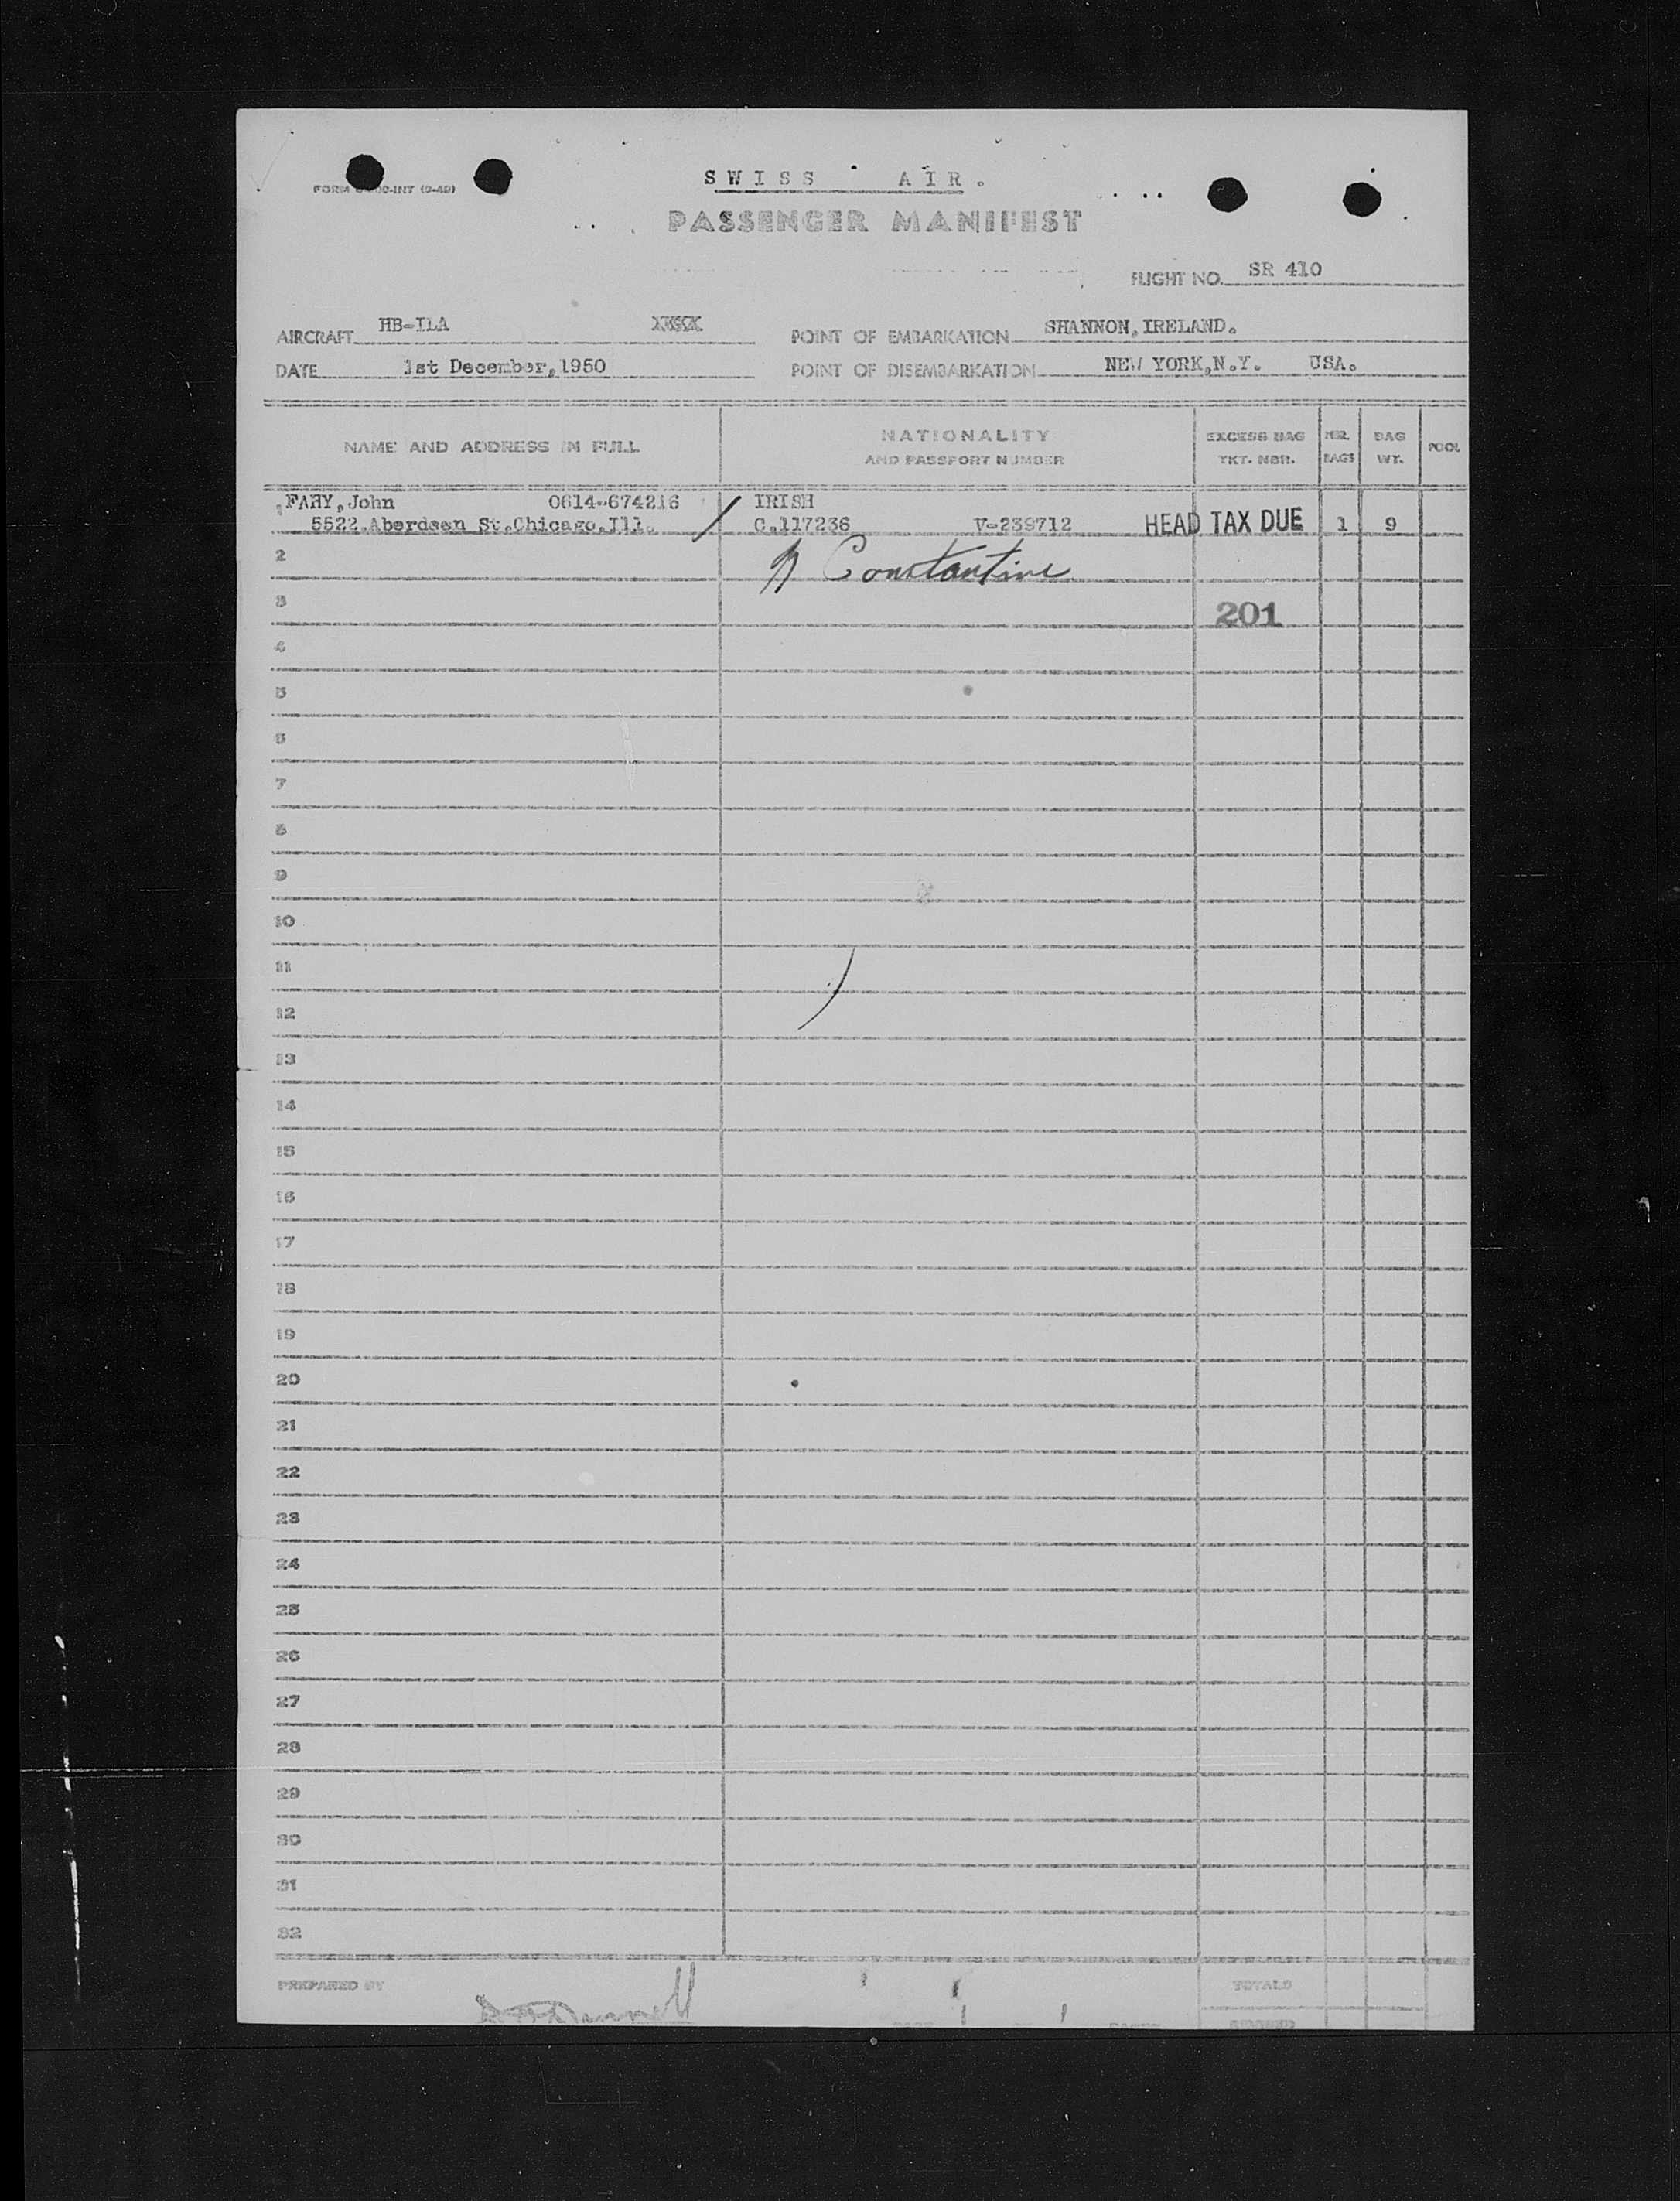 SWISS AIR.
FORM -INT (9-49)
PASSENGER MANIFEST
FLIGHT NO. SR 410
AIRCRAFT HB-ILA POINT OF EMBARKATION SHANNON,IRELAND.
DATE 1st December,1950 POINT OF DISEMBARKATION NEW YORK,N.Y. USA.
NAME AND ADDRESS IN FULL NATIONALITY AND PASSPORT NUMBER EXCESS BAG TKT. NBR. NBR. BAGS BAG WT. POOL
FAHY,John 0614-674216 / IRISH
5522.Aberdeen St.Chicago.Ill. C.117236 V-239712 HEAD TAX DUE 1 9
2 Constantine
3 201
4
5
6
7
8
9
10
11
12
13
14
15
16
17
18
19
20
21
22
23
24
25
26
27
28
29
30
31
32
PREPARED BY TOTALS